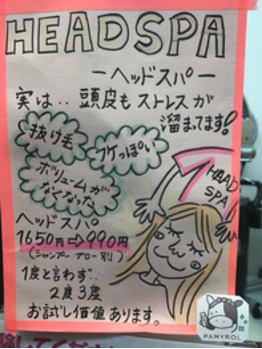 HEADSPA
ーヘッドスパー
実は‥頭皮もストレスが
溜まってます!
抜け毛
フケっぽい
ボリュームが
なくなった
HEAD
SPA
ヘッドスパ
1650円⇒990円
(シャンプーブロー別)
1度と言わず‥
2度3度
お試し価値あります。
PAMYROL